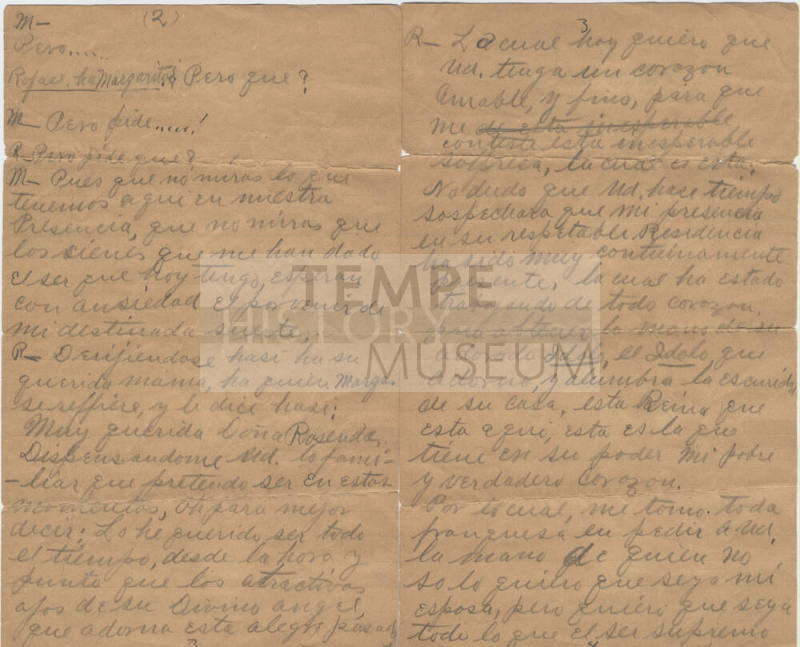 M—
(2)
Pero.....
Rafael ha Margarita: Pero que?
M— Pero pide.....!
R— Pero pide que?
M— Pues que no miras lo que
tenemos aqui en nuestra
Presencia, que no miras que
los sienes que me han dado
el ser que hoy tengo, esperan
con ansiedad el porvenir de
mi destinada suerte,
R— Derijiendose hasi ha su
querida mama, ha quien Marga.
se reffiere, y le dice hasi:
Muy querida Doña Rosenda,
Dispensandome Ud. lo fami-
-liar que pretendo ser en estos
momentos, Oh para mejor
decir: Lo he querido ser todo
el tiempo, desde la hora y
punto que los atractivos
ojos de su Divino angel,
que adorna esta alegre
3
3
R— La cual hoy quiero que
Ud. tenga un corazon
Amable, y fino, para que
me de esta inesperable
conteste esta inesperable
sorpresa, la cual es esta.
No dudo que Ud. hace tiempo
sospechara que mi presencia
en su respetable Residencia
ha sido muy continuamente
presente, la cual ha estado
de todo corazon,
para obtener la mano de su
adorado Idolo, el Idolo que
adorna, y alumbra la escurida
de su casa, esta Reina que
esta aqui, esta es la que
tiene en su poder mi pobre
y verdadero corazon.
Por lo cual, me tomo toda
franquesa en pedir a Ud.
la mano de quien no
solo quiero que seya mi
esposa, pero quiero que seya
todo lo que el ser supremo
4
TEMPE
HISTORY
MUSEUM